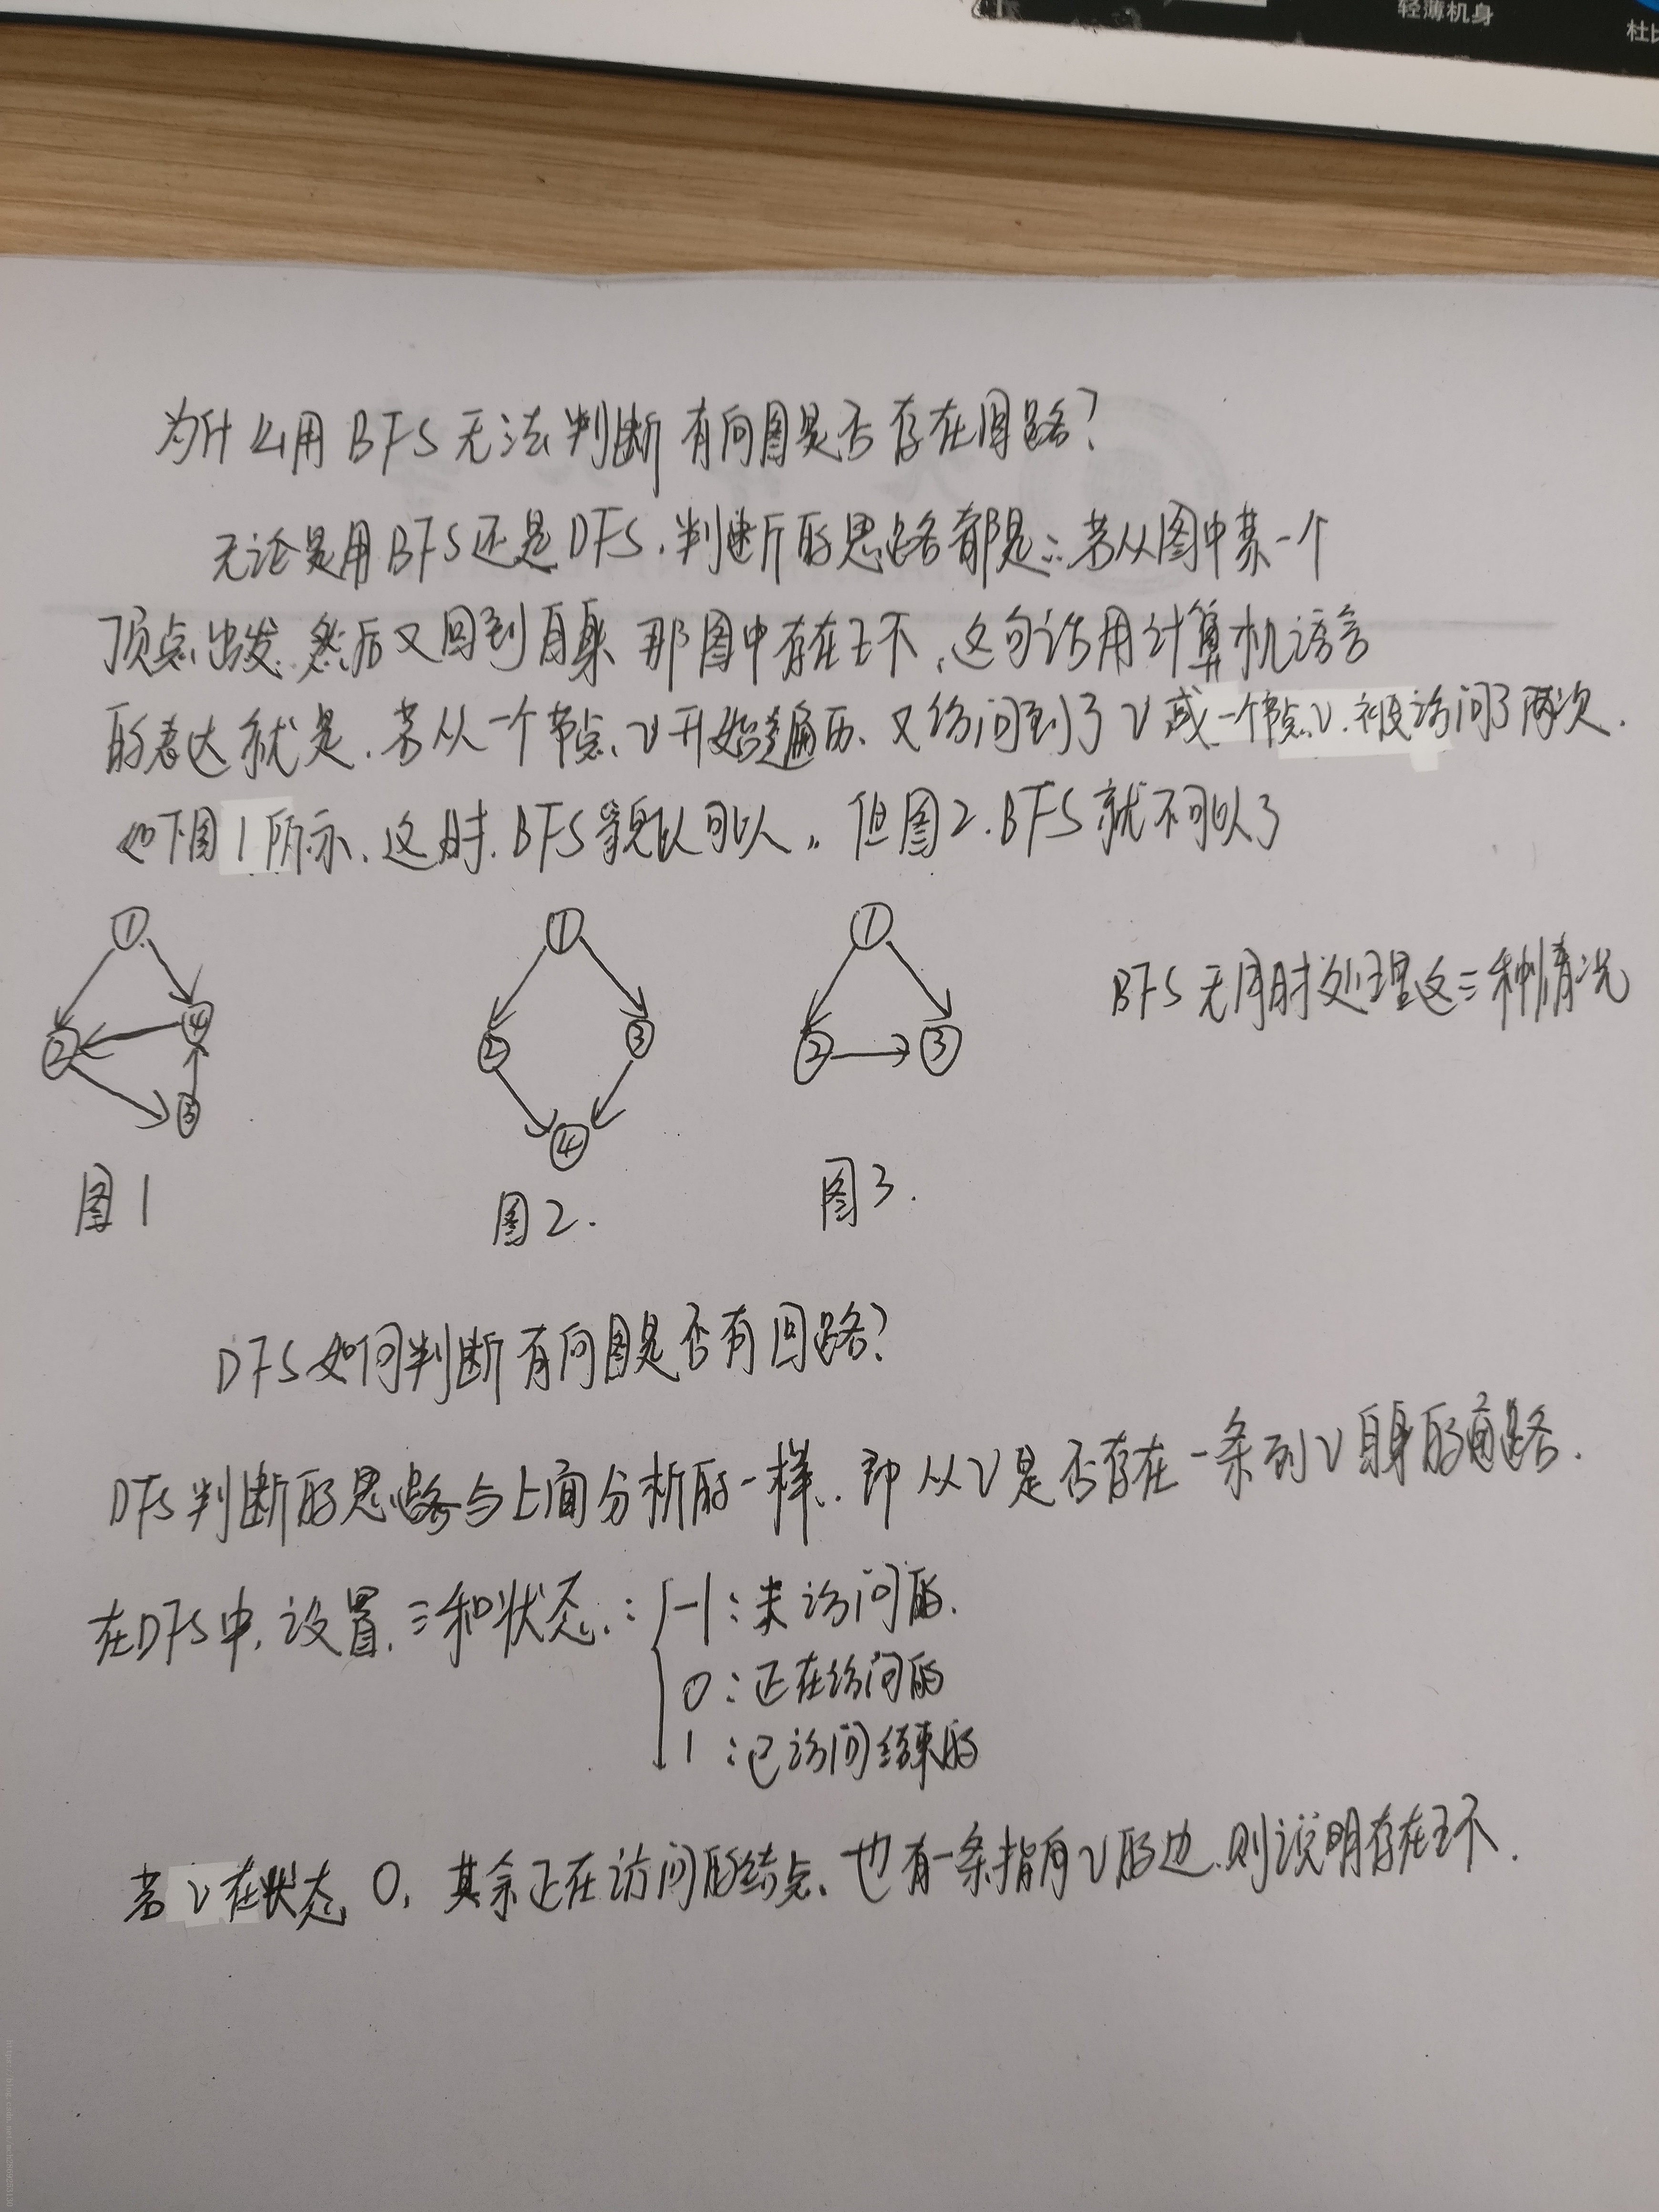 轻薄机身
杜比
为什么用BFS无法判断有向图是否存在回路?
无论是用BFS还是DFS,判断的思路都是:若从图中某一个
顶点出发,然后又回到自身 那图中存在环,这句话用计算机语言
的表达就是,若从一个节点v开始遍历,又访问到了v或一个节点v被访问了两次.
如下图1所示,这时,BFS貌似可以。但图2,BFS就不可以了
① ① ①
BFS无法同时处理这三种情况
② ④ ② ③ ② ③
③ ④
图1 图2. 图3.
DFS如何判断有向图是否有回路?
DFS判断的思路与上面分析的一样,即从v是否存在一条到v自身的通路.
在DFS中,设置三种状态:
-1:未访问的.
0:正在访问的
1:已访问结束的
若v在状态0,其余正在访问的结点,也有一条指向v的边,则说明存在环.